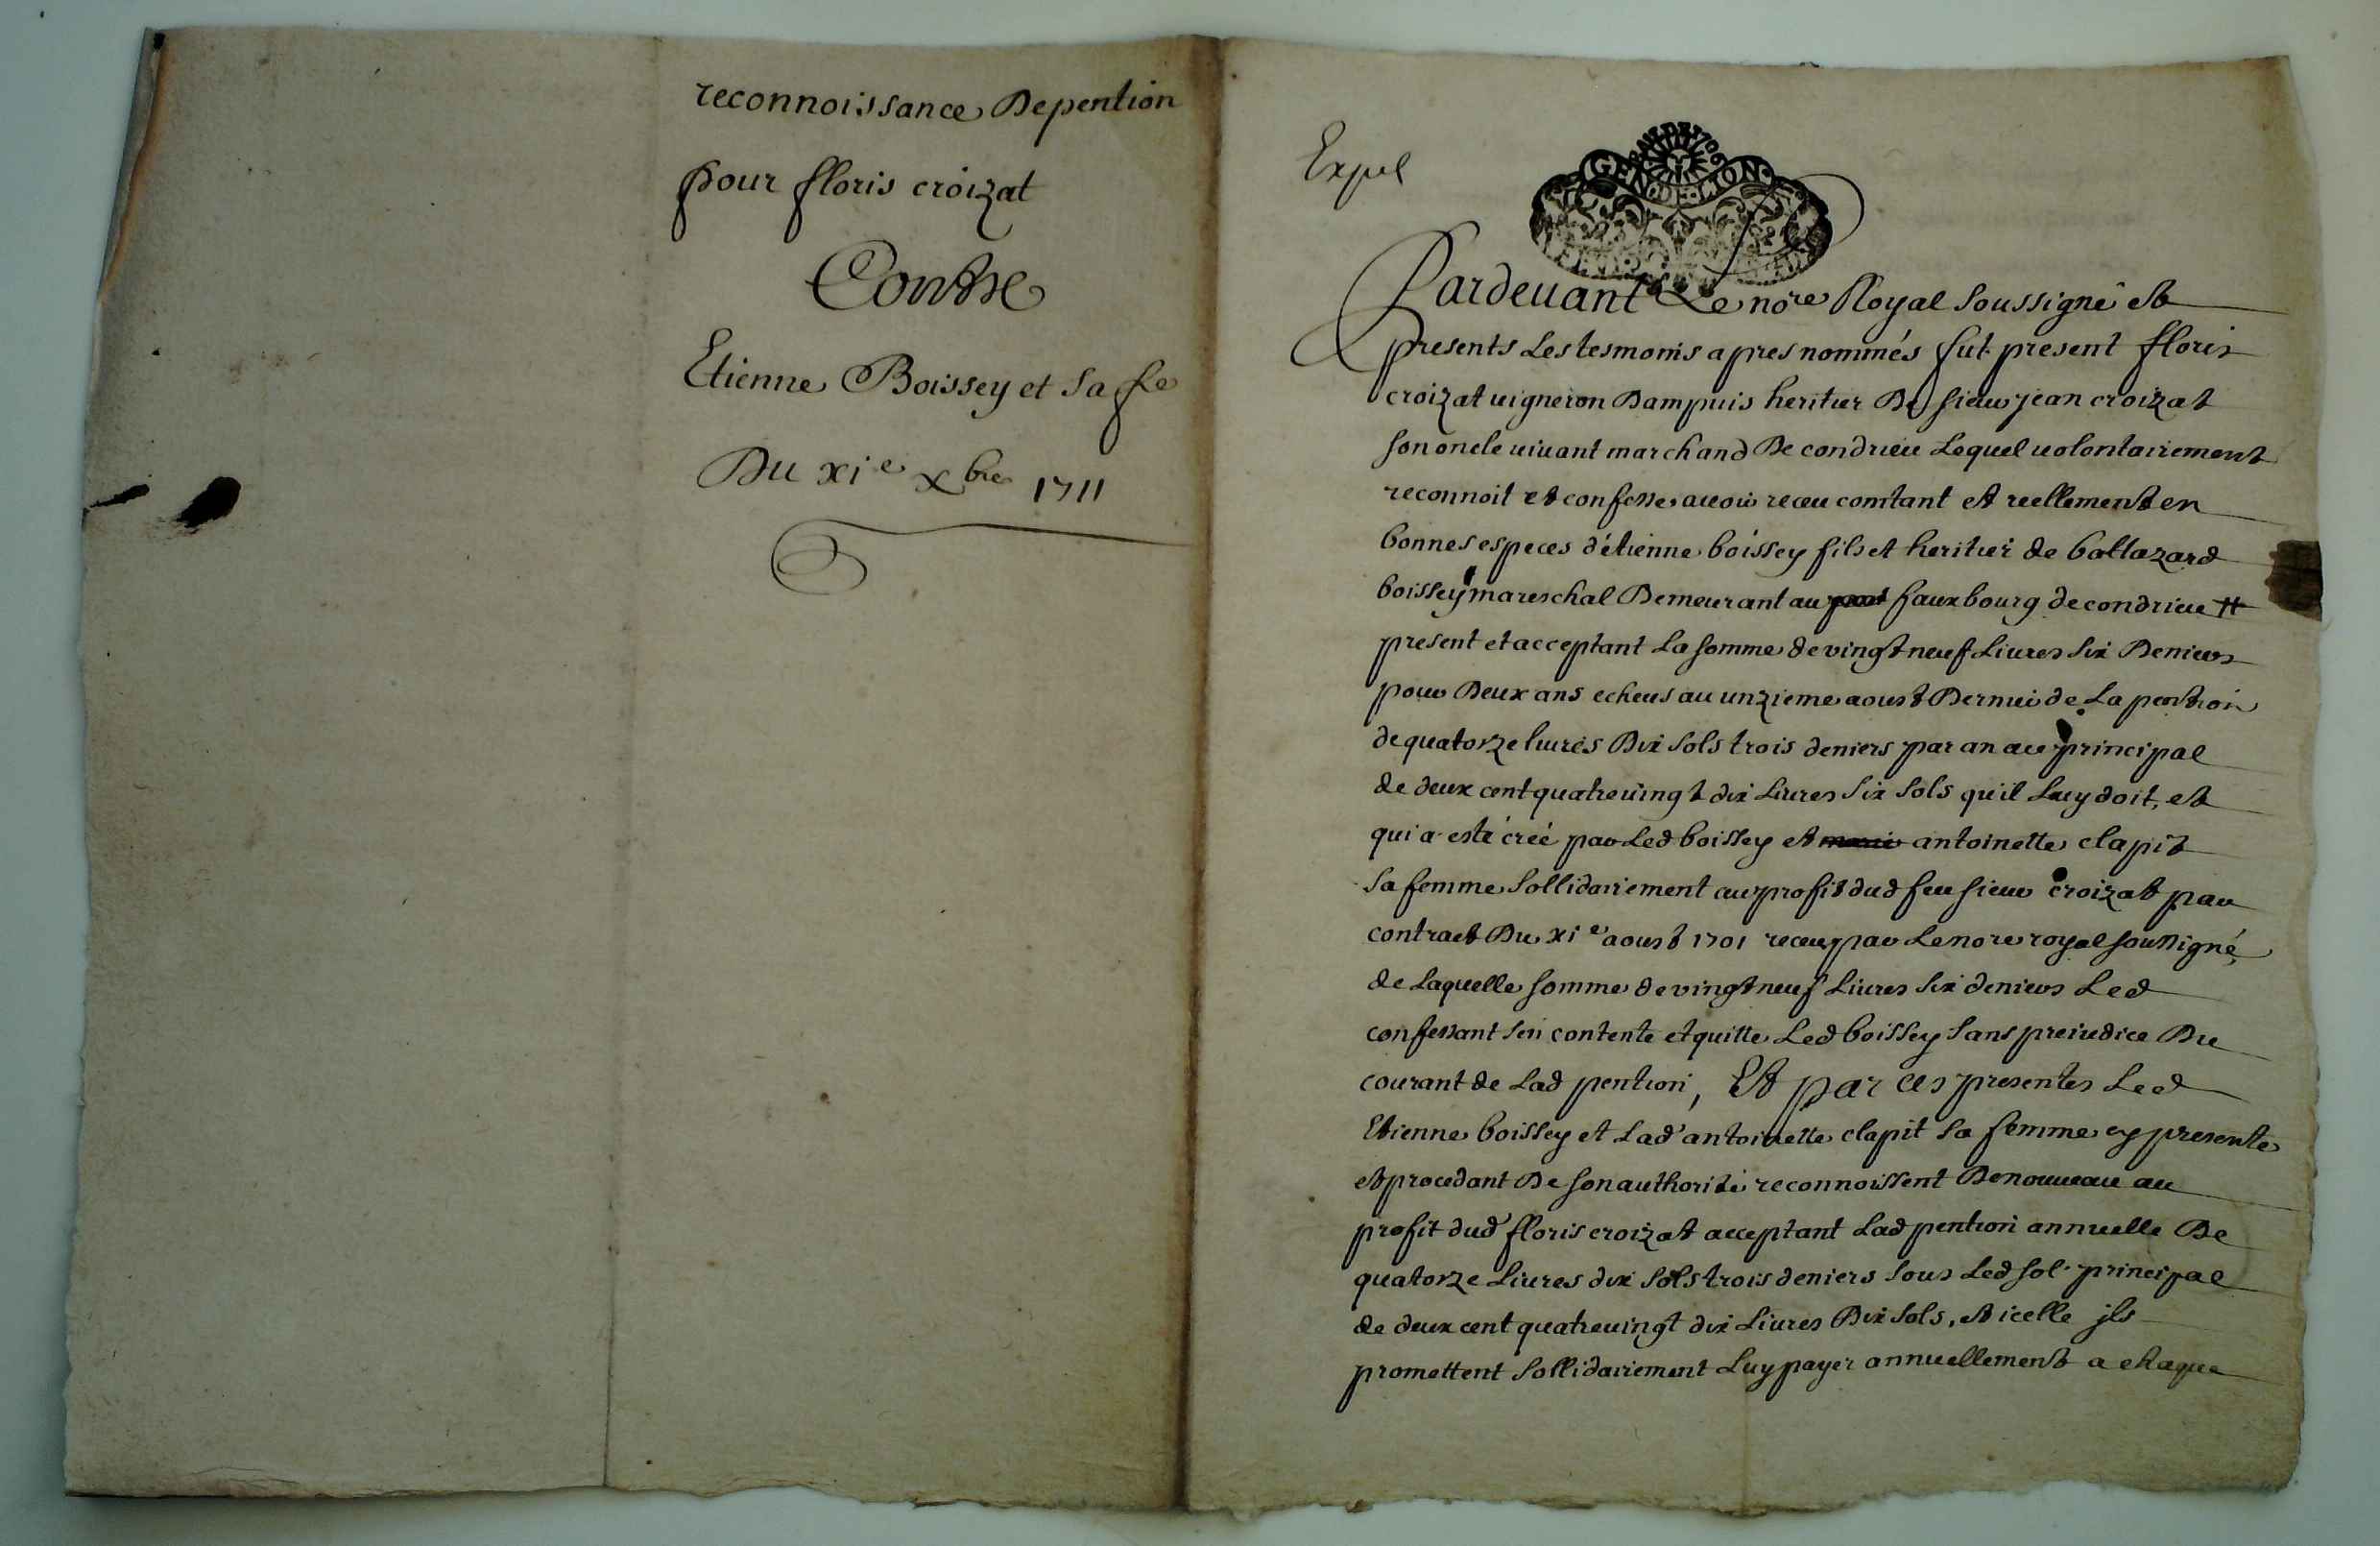 reconnoissance Depention
pour floris croizat
Contre
Etienne Boissey et sa fe
Du xie xbre 1711
Expel
GEN DE LYON
Pardeuant Le nore Royal soussigné et
presents Les tesmoins apres nommés fut present floris
croizat uigneron Dampuis heritier De sieur jean croizat
son oncle uiuant marchand De condrieu Lequel uolontairement
reconnoit et confesse auoir receu comtant et reellement en
bonnes especes d'étienne boissey fils et heritier de baltazard
boissey mareschal Demeurant au fauxbourg de condrieu
present et acceptant La somme de vingt neuf Liures six Deniers
pour Deux ans echeus au unzieme aoust Dernier de La pention
de quatorze liures Dix sols trois deniers par an au principal
de deux cent quatreuingt dix Liures six sols qu'il Luy doit, et
qui a esté créé par Led boissey et antoinette clapit
sa femme sollidairement au profit dud feu sieur croizat par
contract Du xie aoust 1701 receu par Le nore royal soussigné,
de Laquelle somme de vingt neuf Liures six deniers Led
confessant s'en contente et quitte Led boissey sans preiudice Du
courant de Lad pention, Et par ces presentes Led
Etienne boissey et Lad' antoinette clapit sa femme cy presente
et procedant De son authorité reconnoissent De nouueau au
profit dud' floris croizat acceptant Lad pention annuelle De
quatorze Liures dix sols trois deniers sous Led sol. principal
de deux cent quatreuingt dix Liures Dix sols, et icelle jls
promettent sollidairement Luy payer annuellement a chaque